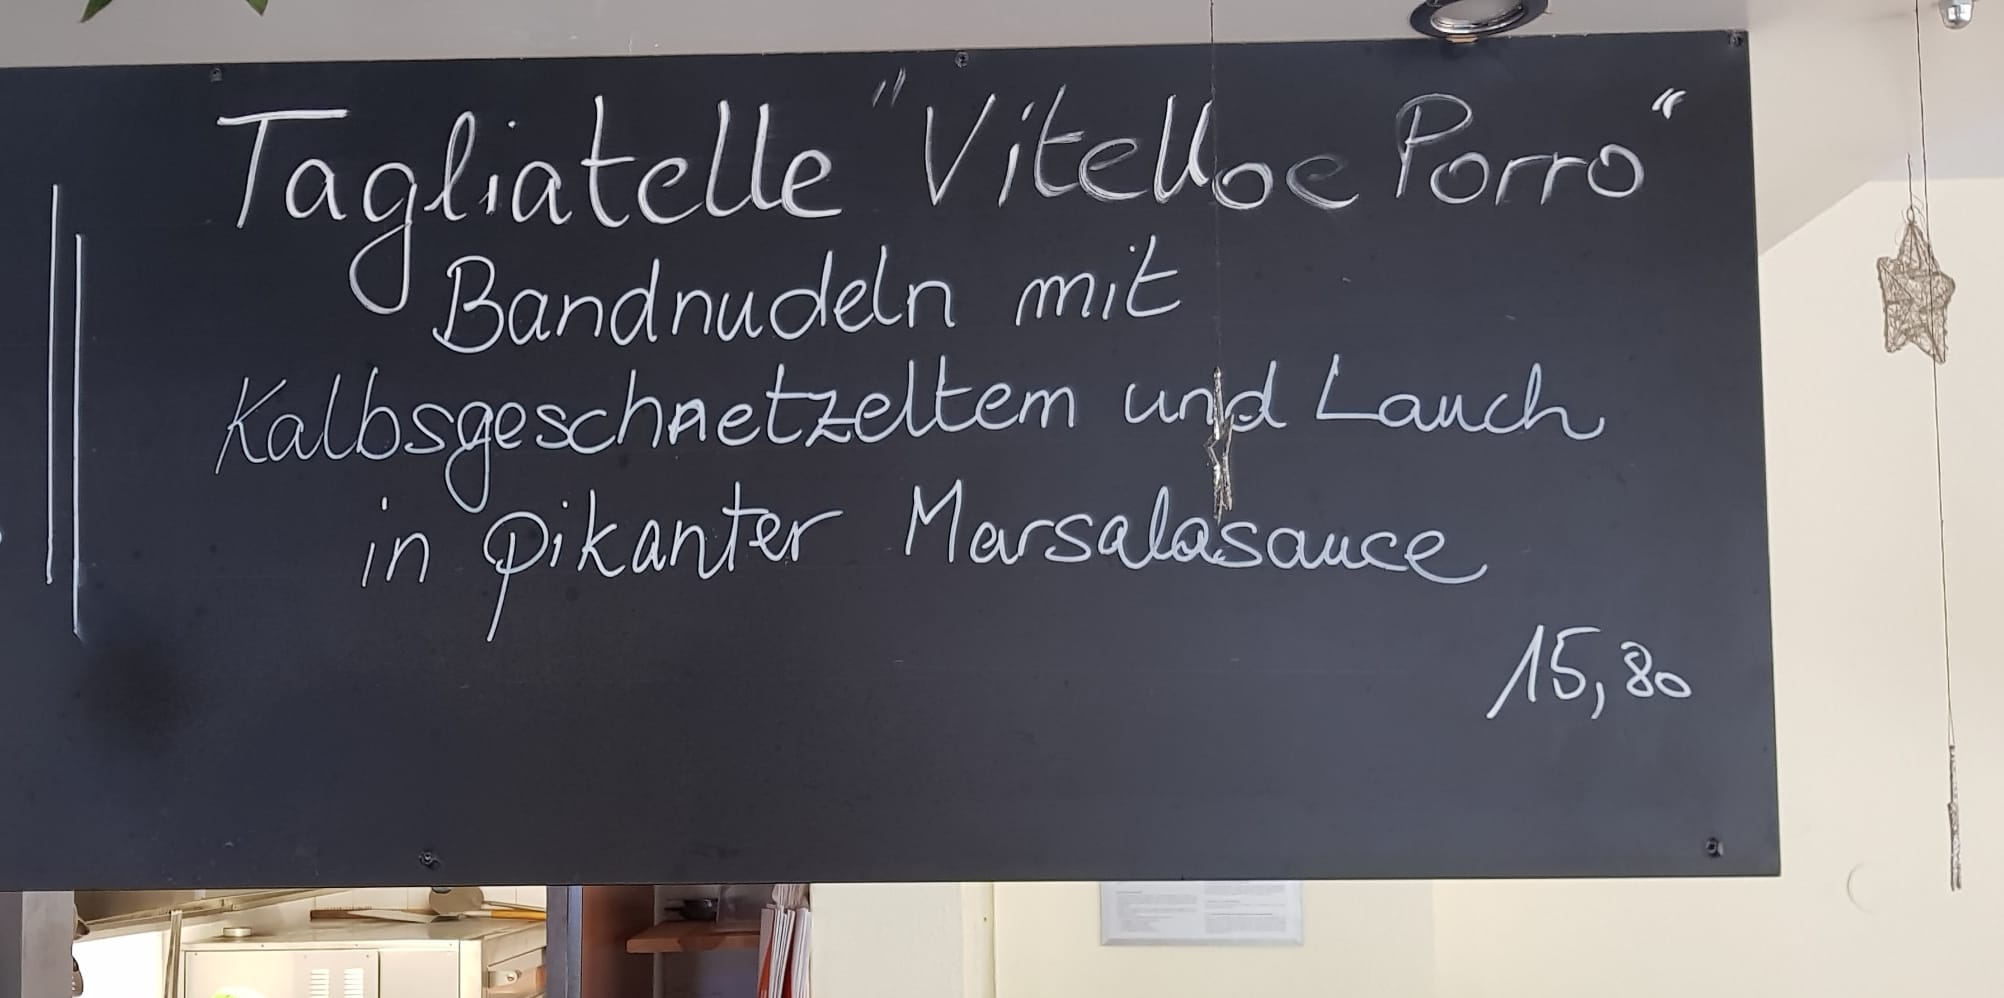 Tagliatelle "Vitello e Porro"
Bandnudeln mit
Kalbsgeschnetzeltem und Lauch
in pikanter Marsalasauce
15,80